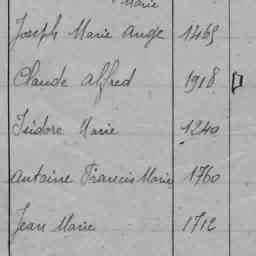 Marie
Joseph Marie Ange 1465
Claude Alfred 1918
Isidore Marie 1240
Antoine Francis Marie 1760
Jean Marie 1712